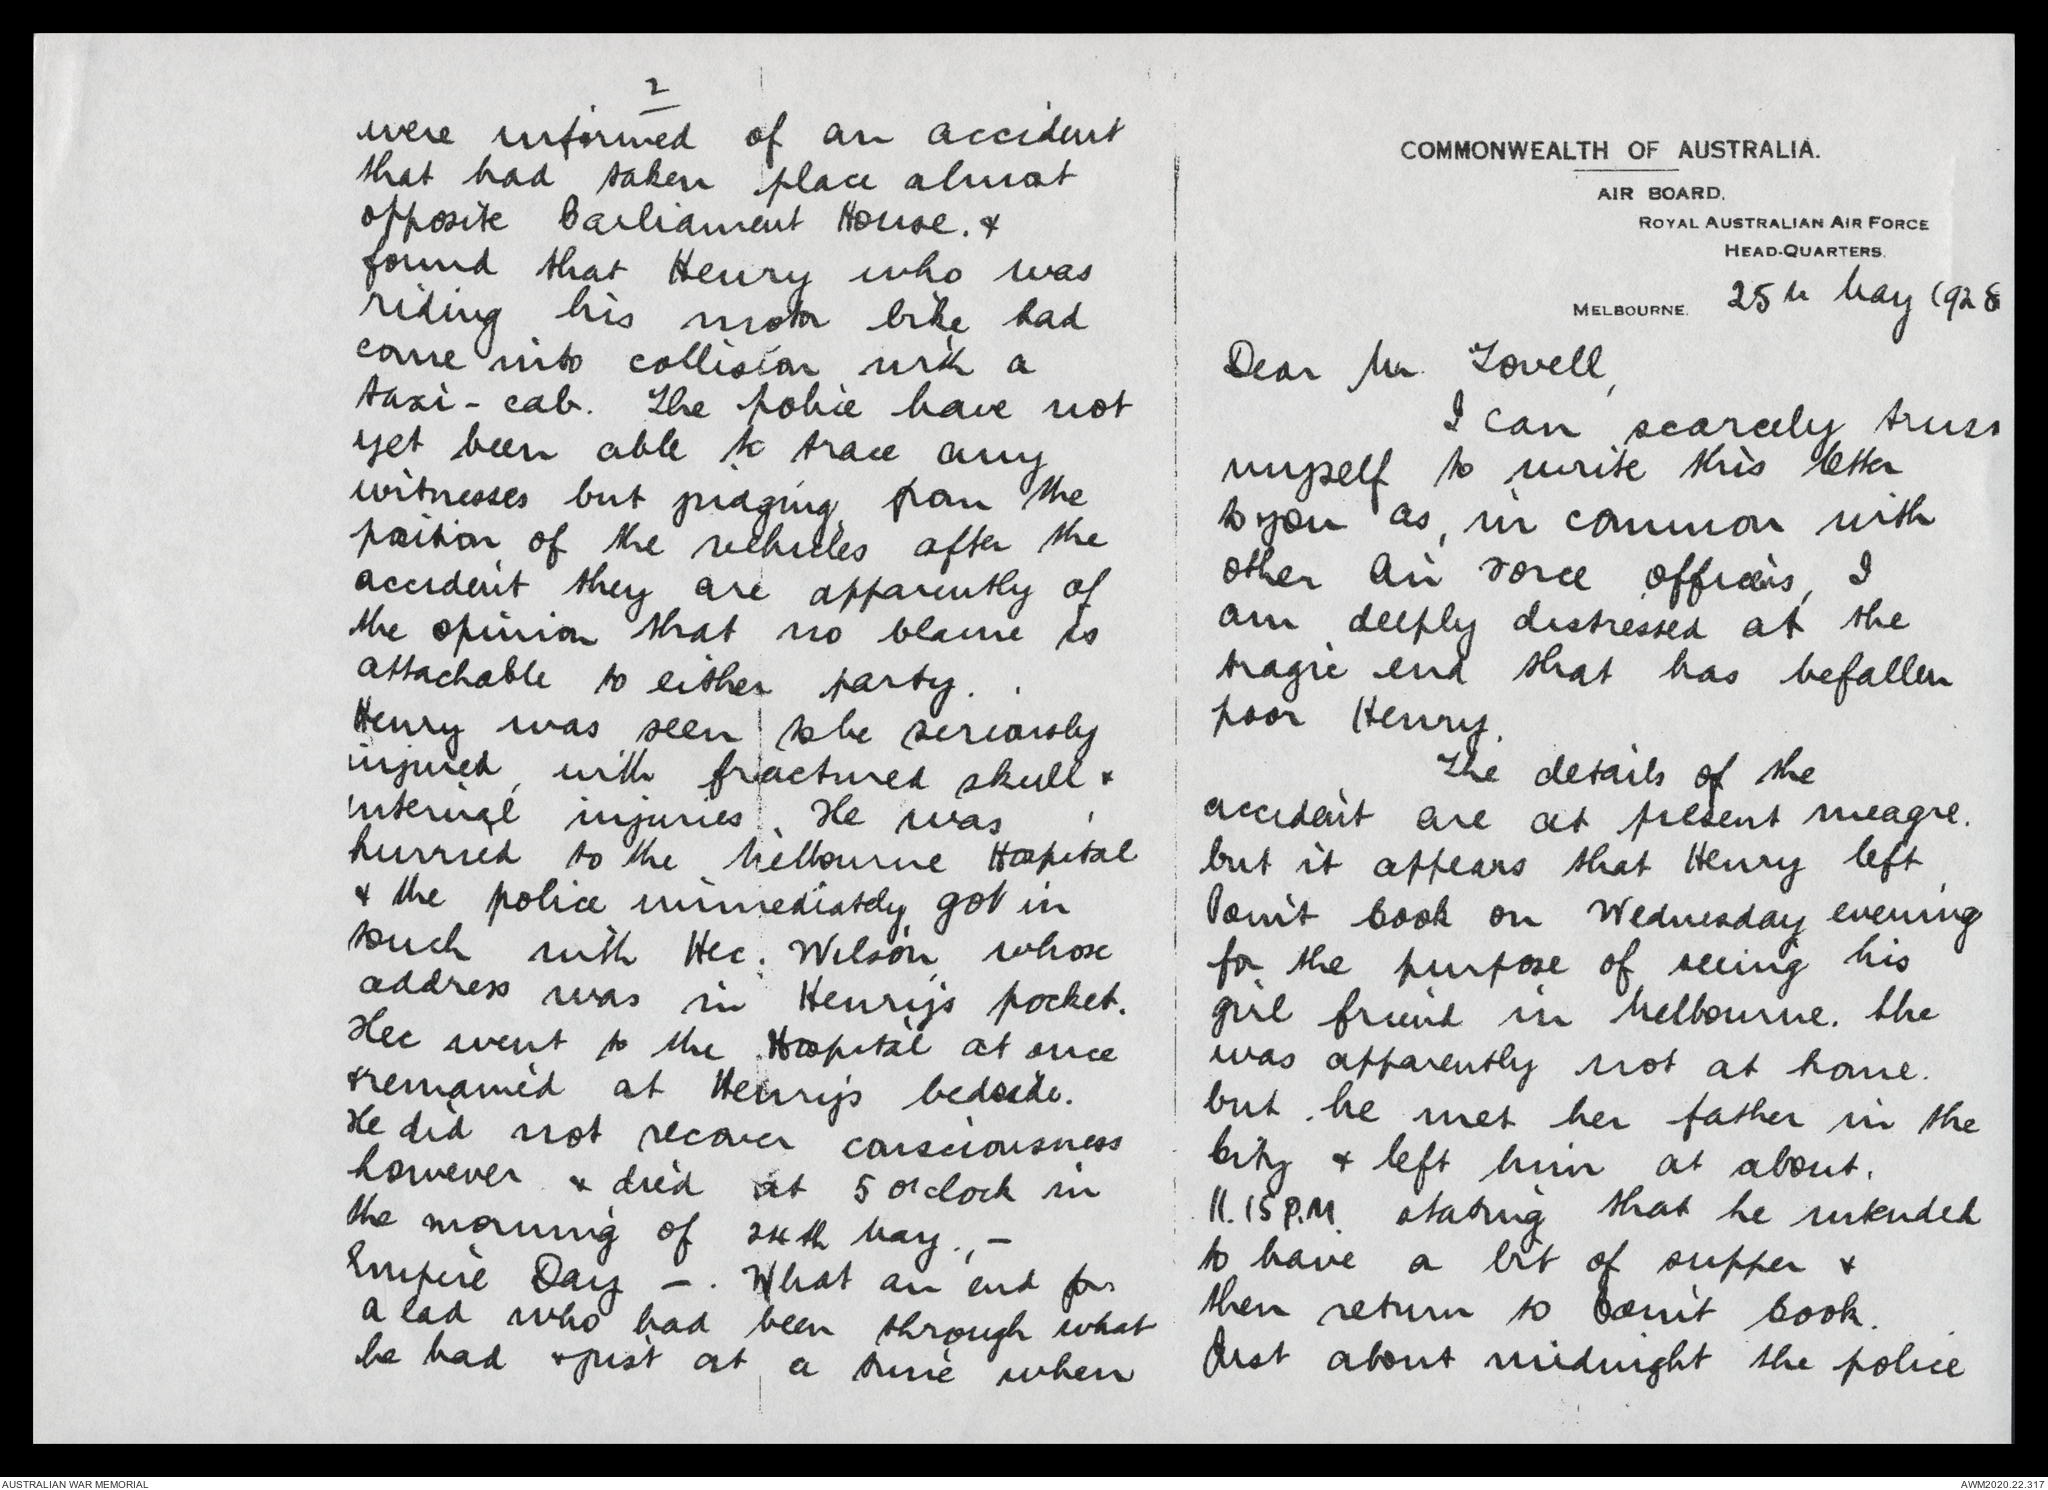 COMMONWEALTH OF AUSTRALIA.
AIR BOARD.
ROYAL AUSTRALIAN AIR FORCE
HEAD-QUARTERS.
MELBOURNE. 25th May 1928
Dear Mr. Lovell,
I can scarcely trust
myself to write this letter
to you as, in common with
other Air Force officers, I
am deeply distressed at the
tragic end that has befallen
poor Henry.
The details of the
accident are at present meagre.
but it appears that Henry left
Point Cook on Wednesday evening
for the purpose of seeing his
girl friend in Melbourne. She
was apparently not at home.
but he met her father in the
City & left him at about.
11.15 P.M. stating that he intended
to have a bit of supper &
then return to Point Cook.
Just about midnight the police
2
were informed of an accident
that had taken place almost
opposite Parliament House. &
found that Henry who was
riding his motor bike had
come into collision with a
taxi-cab. The police have not
yet been able to trace any
witnesses but judging from the
position of the vehicles after the
accident they are apparently of
the opinion that no blame is
attachable to either party.
Henry was seen to be seriously
injured, with fractured skull &
internal injuries. He was
hurried to the Melbourne Hospital
& the police immediately got in
touch with Hec. Wilson, whose
address was in Henry's pocket.
Hec went to the Hospital at once
& remained at Henry's bedside.
He did not recover consciousness
however & died at 5 o'clock in
the morning of 24th May., —
Empire Day —. What an end for
a lad who had been through what
he had & just at a time when
AUSTRALIAN WAR MEMORIAL
AWM2020.22.317